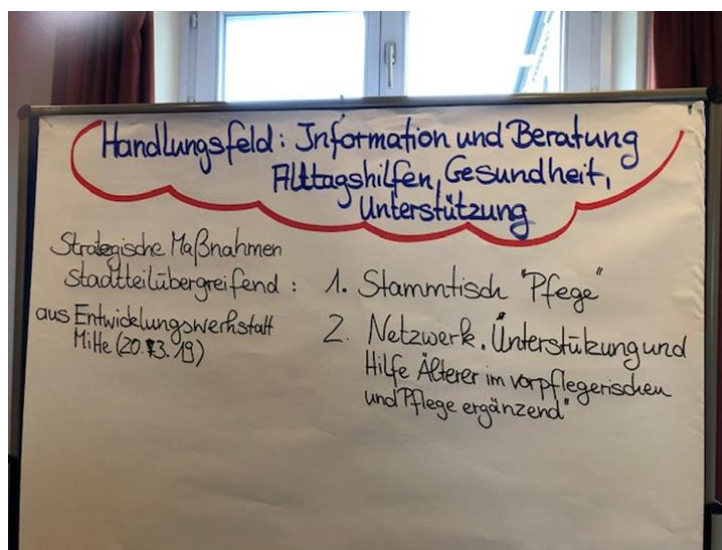 Handlungsfeld: Information und Beratung
Alltagshilfen, Gesundheit,
Unterstützung
Strategische Maßnahmen
Stadtteilübergreifend :
aus Entwickelungswerkstatt
Mitte (20.3.19)
1. Stammtisch "Pfege"
2. Netzwerk "Unterstützung und
Hilfe Älterer im vorpflegerischen
und Pflege ergänzend"